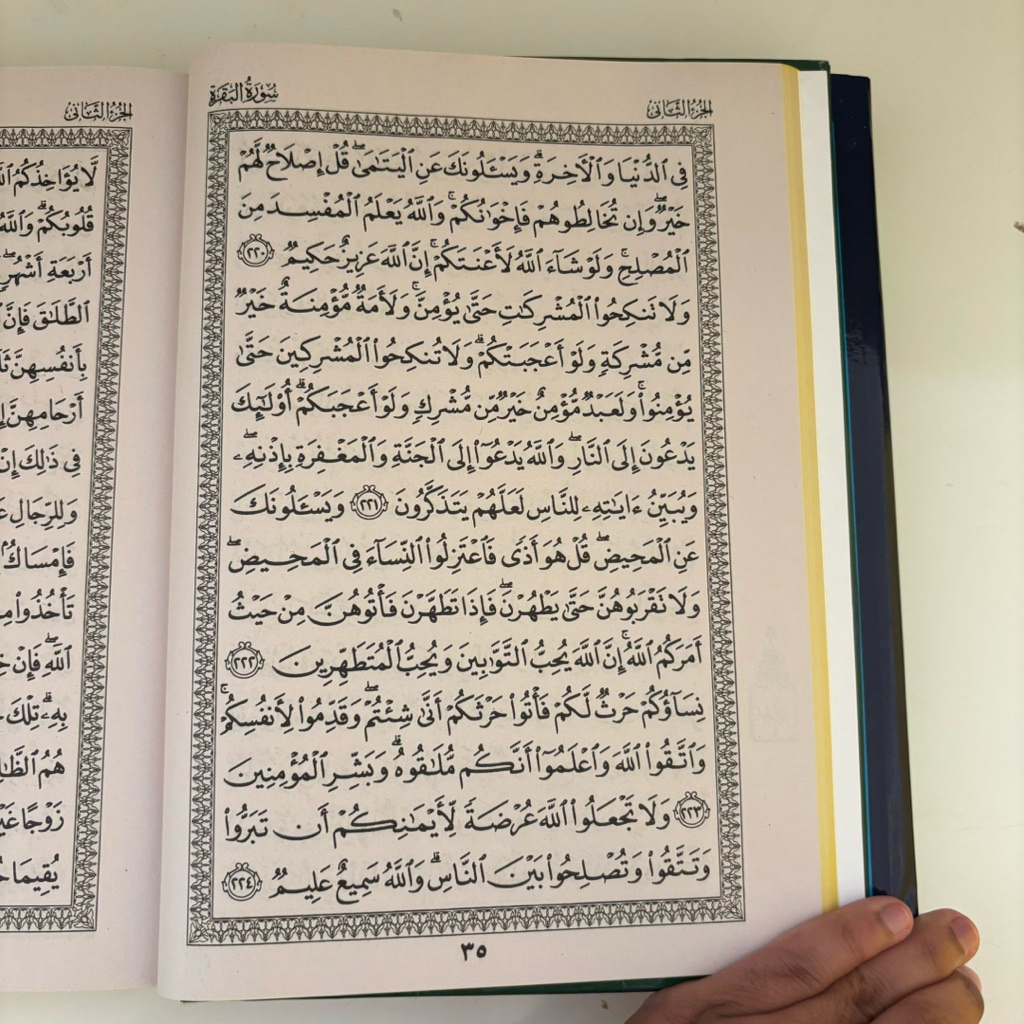 سُورَةُ البَقَرَةِ
الجُزْءُ الثَّانِي
فِى ٱلدُّنْيَا وَٱلْأَخِرَةِۗ وَيَسْـَٔلُونَكَ عَنِ ٱلْيَتَـٰمَىٰۖ قُلْ إِصْلَاحٌ لَّهُمْ
خَيْرٌۖ وَإِن تُخَالِطُوهُمْ فَإِخْوَٰنُكُمْۚ وَٱللَّهُ يَعْلَمُ ٱلْمُفْسِدَ مِنَ
ٱلْمُصْلِحِۚ وَلَوْ شَآءَ ٱللَّهُ لَأَعْنَتَكُمْۚ إِنَّ ٱللَّهَ عَزِيزٌ حَكِيمٌ ٢٢٠
وَلَا تَنكِحُوا۟ ٱلْمُشْرِكَـٰتِ حَتَّىٰ يُؤْمِنَّۚ وَلَأَمَةٌ مُّؤْمِنَةٌ خَيْرٌ
مِّن مُّشْرِكَةٍ وَلَوْ أَعْجَبَتْكُمْۗ وَلَا تُنكِحُوا۟ ٱلْمُشْرِكِينَ حَتَّىٰ
يُؤْمِنُوا۟ۚ وَلَعَبْدٌ مُّؤْمِنٌ خَيْرٌ مِّن مُّشْرِكٍ وَلَوْ أَعْجَبَكُمْۗ أُو۟لَـٰٓئِكَ
يَدْعُونَ إِلَى ٱلنَّارِۖ وَٱللَّهُ يَدْعُوٓا۟ إِلَى ٱلْجَنَّةِ وَٱلْمَغْفِرَةِ بِإِذْنِهِۦۖ
وَيُبَيِّنُ ءَايَـٰتِهِۦ لِلنَّاسِ لَعَلَّهُمْ يَتَذَكَّرُونَ ٢٢١ وَيَسْـَٔلُونَكَ
عَنِ ٱلْمَحِيضِۖ قُلْ هُوَ أَذًى فَٱعْتَزِلُوا۟ ٱلنِّسَآءَ فِى ٱلْمَحِيضِۖ
وَلَا تَقْرَبُوهُنَّ حَتَّىٰ يَطْهُرْنَۖ فَإِذَا تَطَهَّرْنَ فَأْتُوهُنَّ مِنْ حَيْثُ
أَمَرَكُمُ ٱللَّهُۚ إِنَّ ٱللَّهَ يُحِبُّ ٱلتَّوَّٰبِينَ وَيُحِبُّ ٱلْمُتَطَهِّرِينَ ٢٢٢
نِسَآؤُكُمْ حَرْثٌ لَّكُمْ فَأْتُوا۟ حَرْثَكُمْ أَنَّىٰ شِئْتُمْۖ وَقَدِّمُوا۟ لِأَنفُسِكُمْۚ
وَٱتَّقُوا۟ ٱللَّهَ وَٱعْلَمُوٓا۟ أَنَّكُم مُّلَـٰقُوهُۗ وَبَشِّرِ ٱلْمُؤْمِنِينَ
٢٢٣ وَلَا تَجْعَلُوا۟ ٱللَّهَ عُرْضَةً لِّأَيْمَـٰنِكُمْ أَن تَبَرُّوا۟
وَتَتَّقُوا۟ وَتُصْلِحُوا۟ بَيْنَ ٱلنَّاسِۗ وَٱللَّهُ سَمِيعٌ عَلِيمٌ ٢٢٤
٣٥
الجُزْءُ الثَّانِي
لَّا يُؤَاخِذُكُمُ
قُلُوبُكُمْۗ وَٱللَّهُ
أَرْبَعَةِ أَشْهُرٍۖ
ٱلطَّلَـٰقَ فَإِنَّ
بِأَنفُسِهِنَّ
أَرْحَامِهِنَّ
فِى ذَٰلِكَ إِنْ
وَلِلرِّجَالِ
فَإِمْسَاكٌۢ
تَأْخُذُوا۟
ٱللَّهِۖ فَإِنْ
بِهِۦۗ تِلْكَ
هُمُ
زَوْجًا
يُقِيمَا